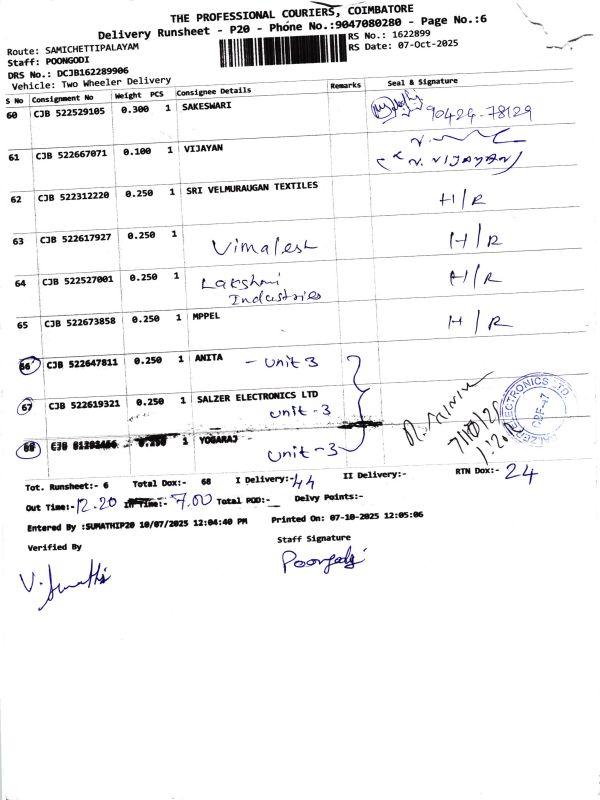 THE PROFESSIONAL COURIERS, COIMBATORE
Delivery Runsheet - P20 - Phone No.:9047080280 - Page No.:6
Route: SAMICHETTIPALAYAM
RS No.: 1622899
Staff: POONGODI
RS Date: 07-Oct-2025
DRS No.: DCJB162289906
Vehicle: Two Wheeler Delivery
S No Consignment No Weight PCS Consignee Details Remarks Seal & Signature
60 CJB 522529105 0.300 1 SAKESWARI 90424-78129
61 CJB 522667071 0.100 1 VIJAYAN
(N. VIJAYAN)
62 CJB 522312220 0.250 1 SRI VELMURAUGAN TEXTILES H/R
63 CJB 522617927 0.250 1 Vimalesh H/R
64 CJB 522527001 0.250 1 Lakshmi Industries H/R
65 CJB 522673858 0.250 1 MPPEL H/R
66 CJB 522647811 0.250 1 ANITA - unit 3
67 CJB 522619321 0.250 1 SALZER ELECTRONICS LTD unit -3
68 CJB 0.250 1 YOGARAJ unit -3
Tot. Runsheet:- 6 Total Dox:- 68 I Delivery:- 44 II Delivery:- RTN Dox:- 24
Out Time:- 12.20 In Time:- 7.00 Total POD:- Delvy Points:-
Entered By :SUMATHIP20 10/07/2025 12:04:40 PM Printed On: 07-10-2025 12:05:06
Verified By Staff Signature
V. Sumathi Poongodi